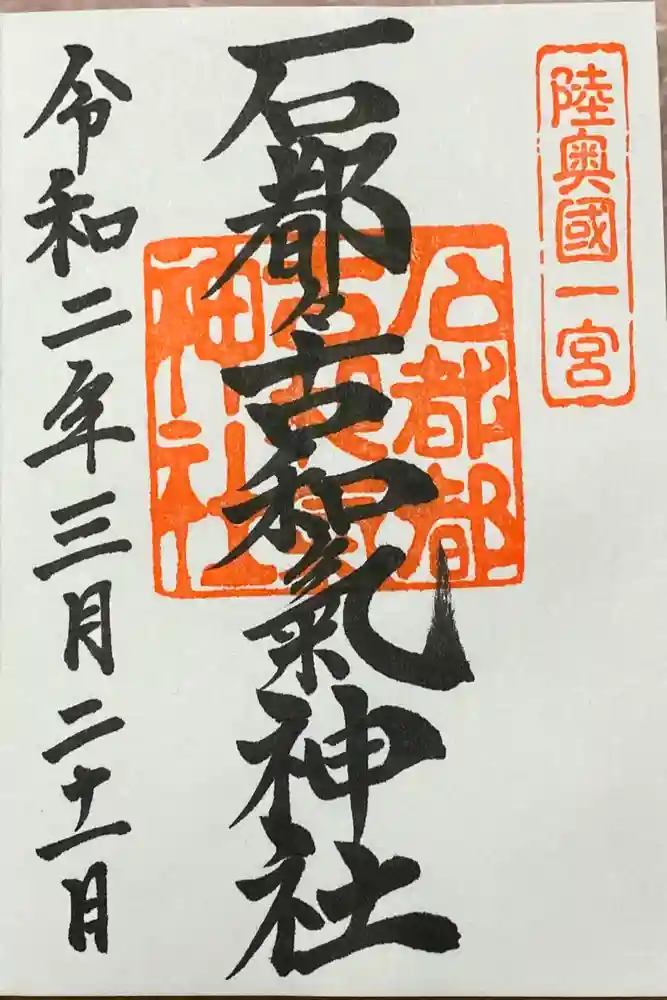 陸奥國一宮
石都々古和氣神社
石都都
古和氣
神社
令和二年三月二十一日